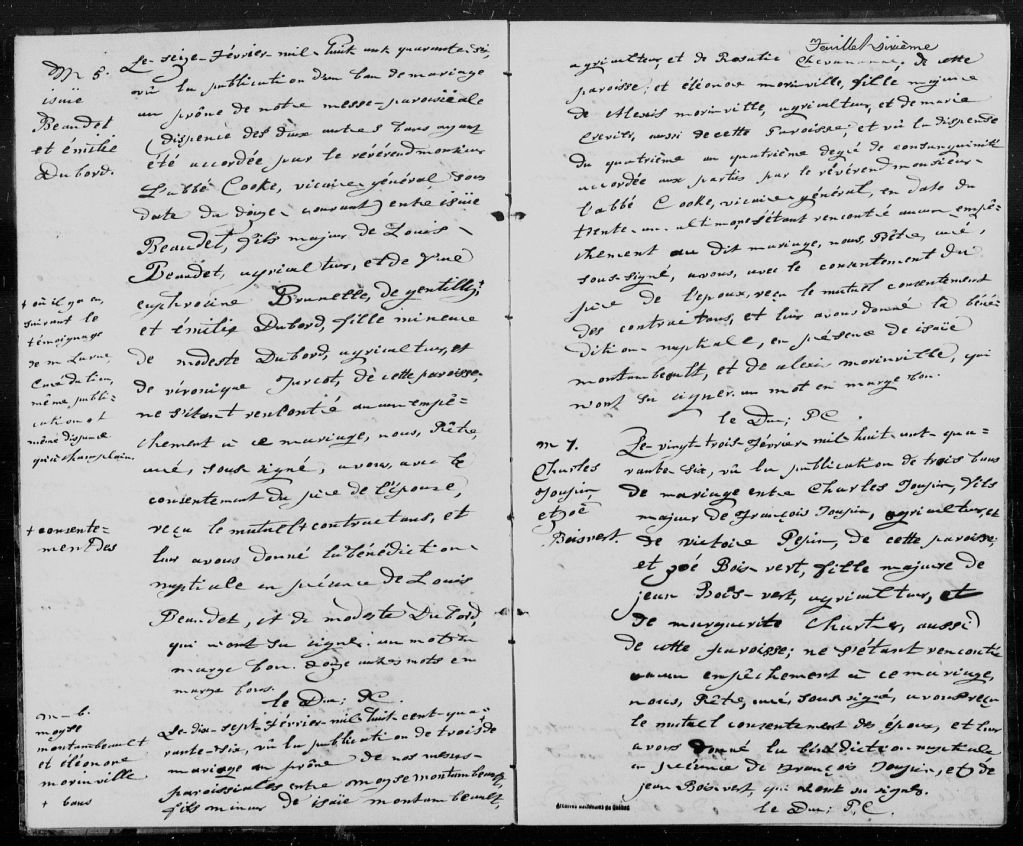 M 5.
isaïe
Beaudet
et émilie
Dubord.
Le seize Février mil huit cent quarante six,
vû la publication d'un ban de mariage
au prône de notre messe paroissiale
(dispence des deux autres bans ayant
été accordée par le révérend monsieur
L'abbé Cooke, vicaire général, sous
date du douze courant) entre isaïe
Beaudet, fils majeur de Louis
Beaudet, agriculteur, et de
euphrosine Brunelle, de gentilly,+
et émilie Dubord, fille mineure
de modeste Dubord, agriculteur, et
de véronique Turcot, de cette paroisse,
ne s'étant rencontré aucun empê-
chement à ce mariage, nous, Prêtre,
curé, sous-signé, avons, avec le
consentement du père de l'épouse,
reçu le mutuel + contractans, et
leur avons donné la bénédiction
nuptiale en présence de Louis
Beaudet, et de modeste Dubord,
qui n'ont su signer. un mot en
marge bon. douze autres mots en
marge bons.
le Duc; P.C.
+ où il y a eu,
suivant le
témoignage
de m Larue,
Curé du lieu,
même publi-
cation et
même dispence
qu'à champlain.
+ consente-
ment des
m- 6.
moyse
montambeault
et éléonore
morinville
+ bans
Le dix-sept Février mil huit-cent-qua-
rante-six, vû la publication de trois + de
mariage au prône de nos messes
paroissiales entre moyse montambeault,
fils mineur de isaïe montambeault,
Feuillet sixième
agriculteur et de Rosalie, de cette
paroisse; et éléonore morinville, fille majeure
de Alexis morinville, agriculteur, et de marie
aussi de cette Paroisse; et vû la dispense
du quatrième au quatrième degré de consanguinité
accordée aux partis par le révérend monsieur
l'abbé Cooke, vicaire général, en date du
trente-un ultimo, ne s'étant rencontré aucun empê-
chement au dit mariage, nous, Prêtre, curé,
sous-signé, avons, avec le consentement du
père de l'époux, reçu le mutuel consentement
des contractans, et leur avons donné la béné-
diction nuptiale, en présence de isaïe
montambeault, et de alexis morinville, qui
n'ont su signer. un mot en marge bon.
le Duc; P.C.
m 7.
Charles
Toupin,
et zoé
Boisvert.
Le vingt trois Février mil huit cent qua-
rante six, vû la publication de trois bans
de mariage entre Charles Toupin, fils
majeur de François Toupin, agriculteur, et
de victoire Pepin, de cette paroisse;
et zoé Bois-vert, fille majeure de
jean Bois-vert, agriculteur, et
de marguerite, aussi
de cette paroisse; ne s'étant rencontré
aucun empêchement à ce mariage,
nous, Prêtre, curé, sous-signé, avons reçu
le mutuel consentement des époux, et leur
avons donné la bénédiction nuptiale
en présence de François Toupin, et de
jean Boisvert, qui n'ont su signer.
le Duc; P.C.
Archives nationales du Québec